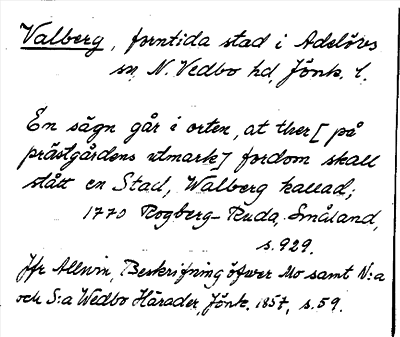 Valberg, forntida stad i Adelövs
sn, N. Vedbo hd, Jönk. l.
En sägn går i orten, at ther [på
prästgårdens utmark] fordom skall
stått en Stad, Walberg kallad;
1770 Rogberg-Ruda, Småland,
s. 929.
Jfr Allvin, Beskrifning öfwer Mo samt N:a
och S:a Wedbo Härader, Jönk. 1857, s. 59.